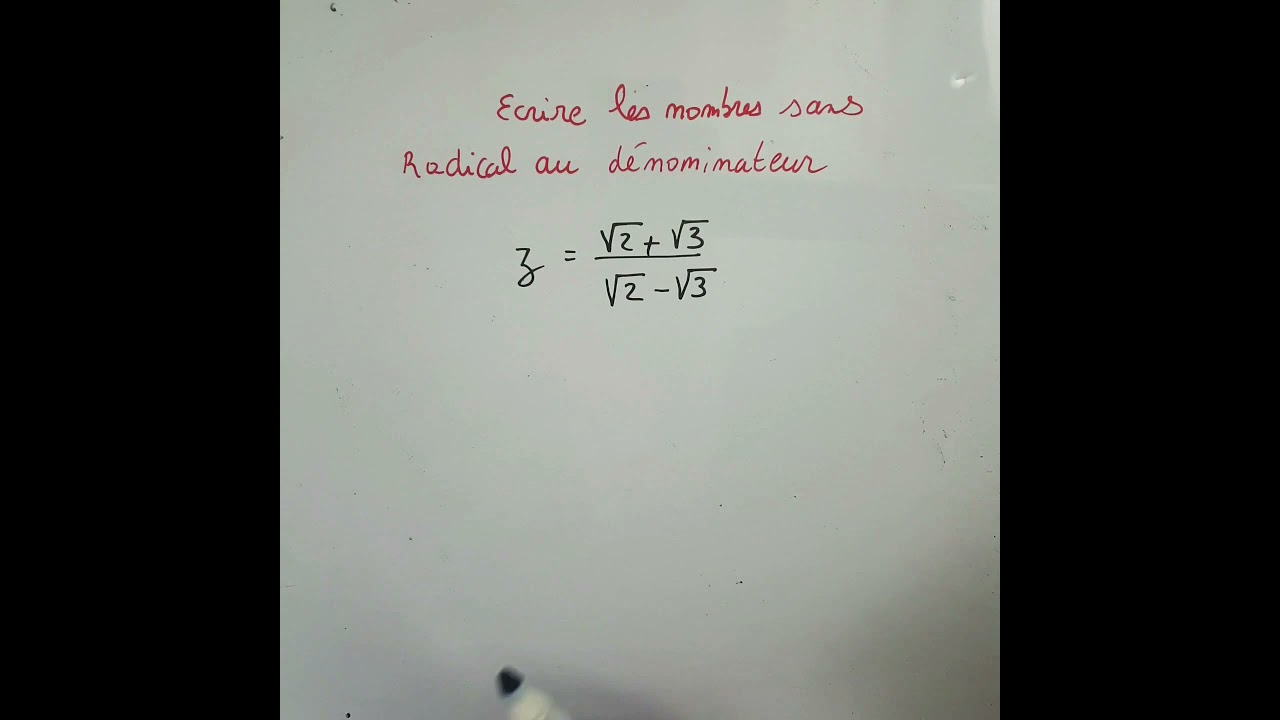 Ecrire les nombres sans
Radical au dénominateur
z = (√2 + √3) / (√2 − √3)